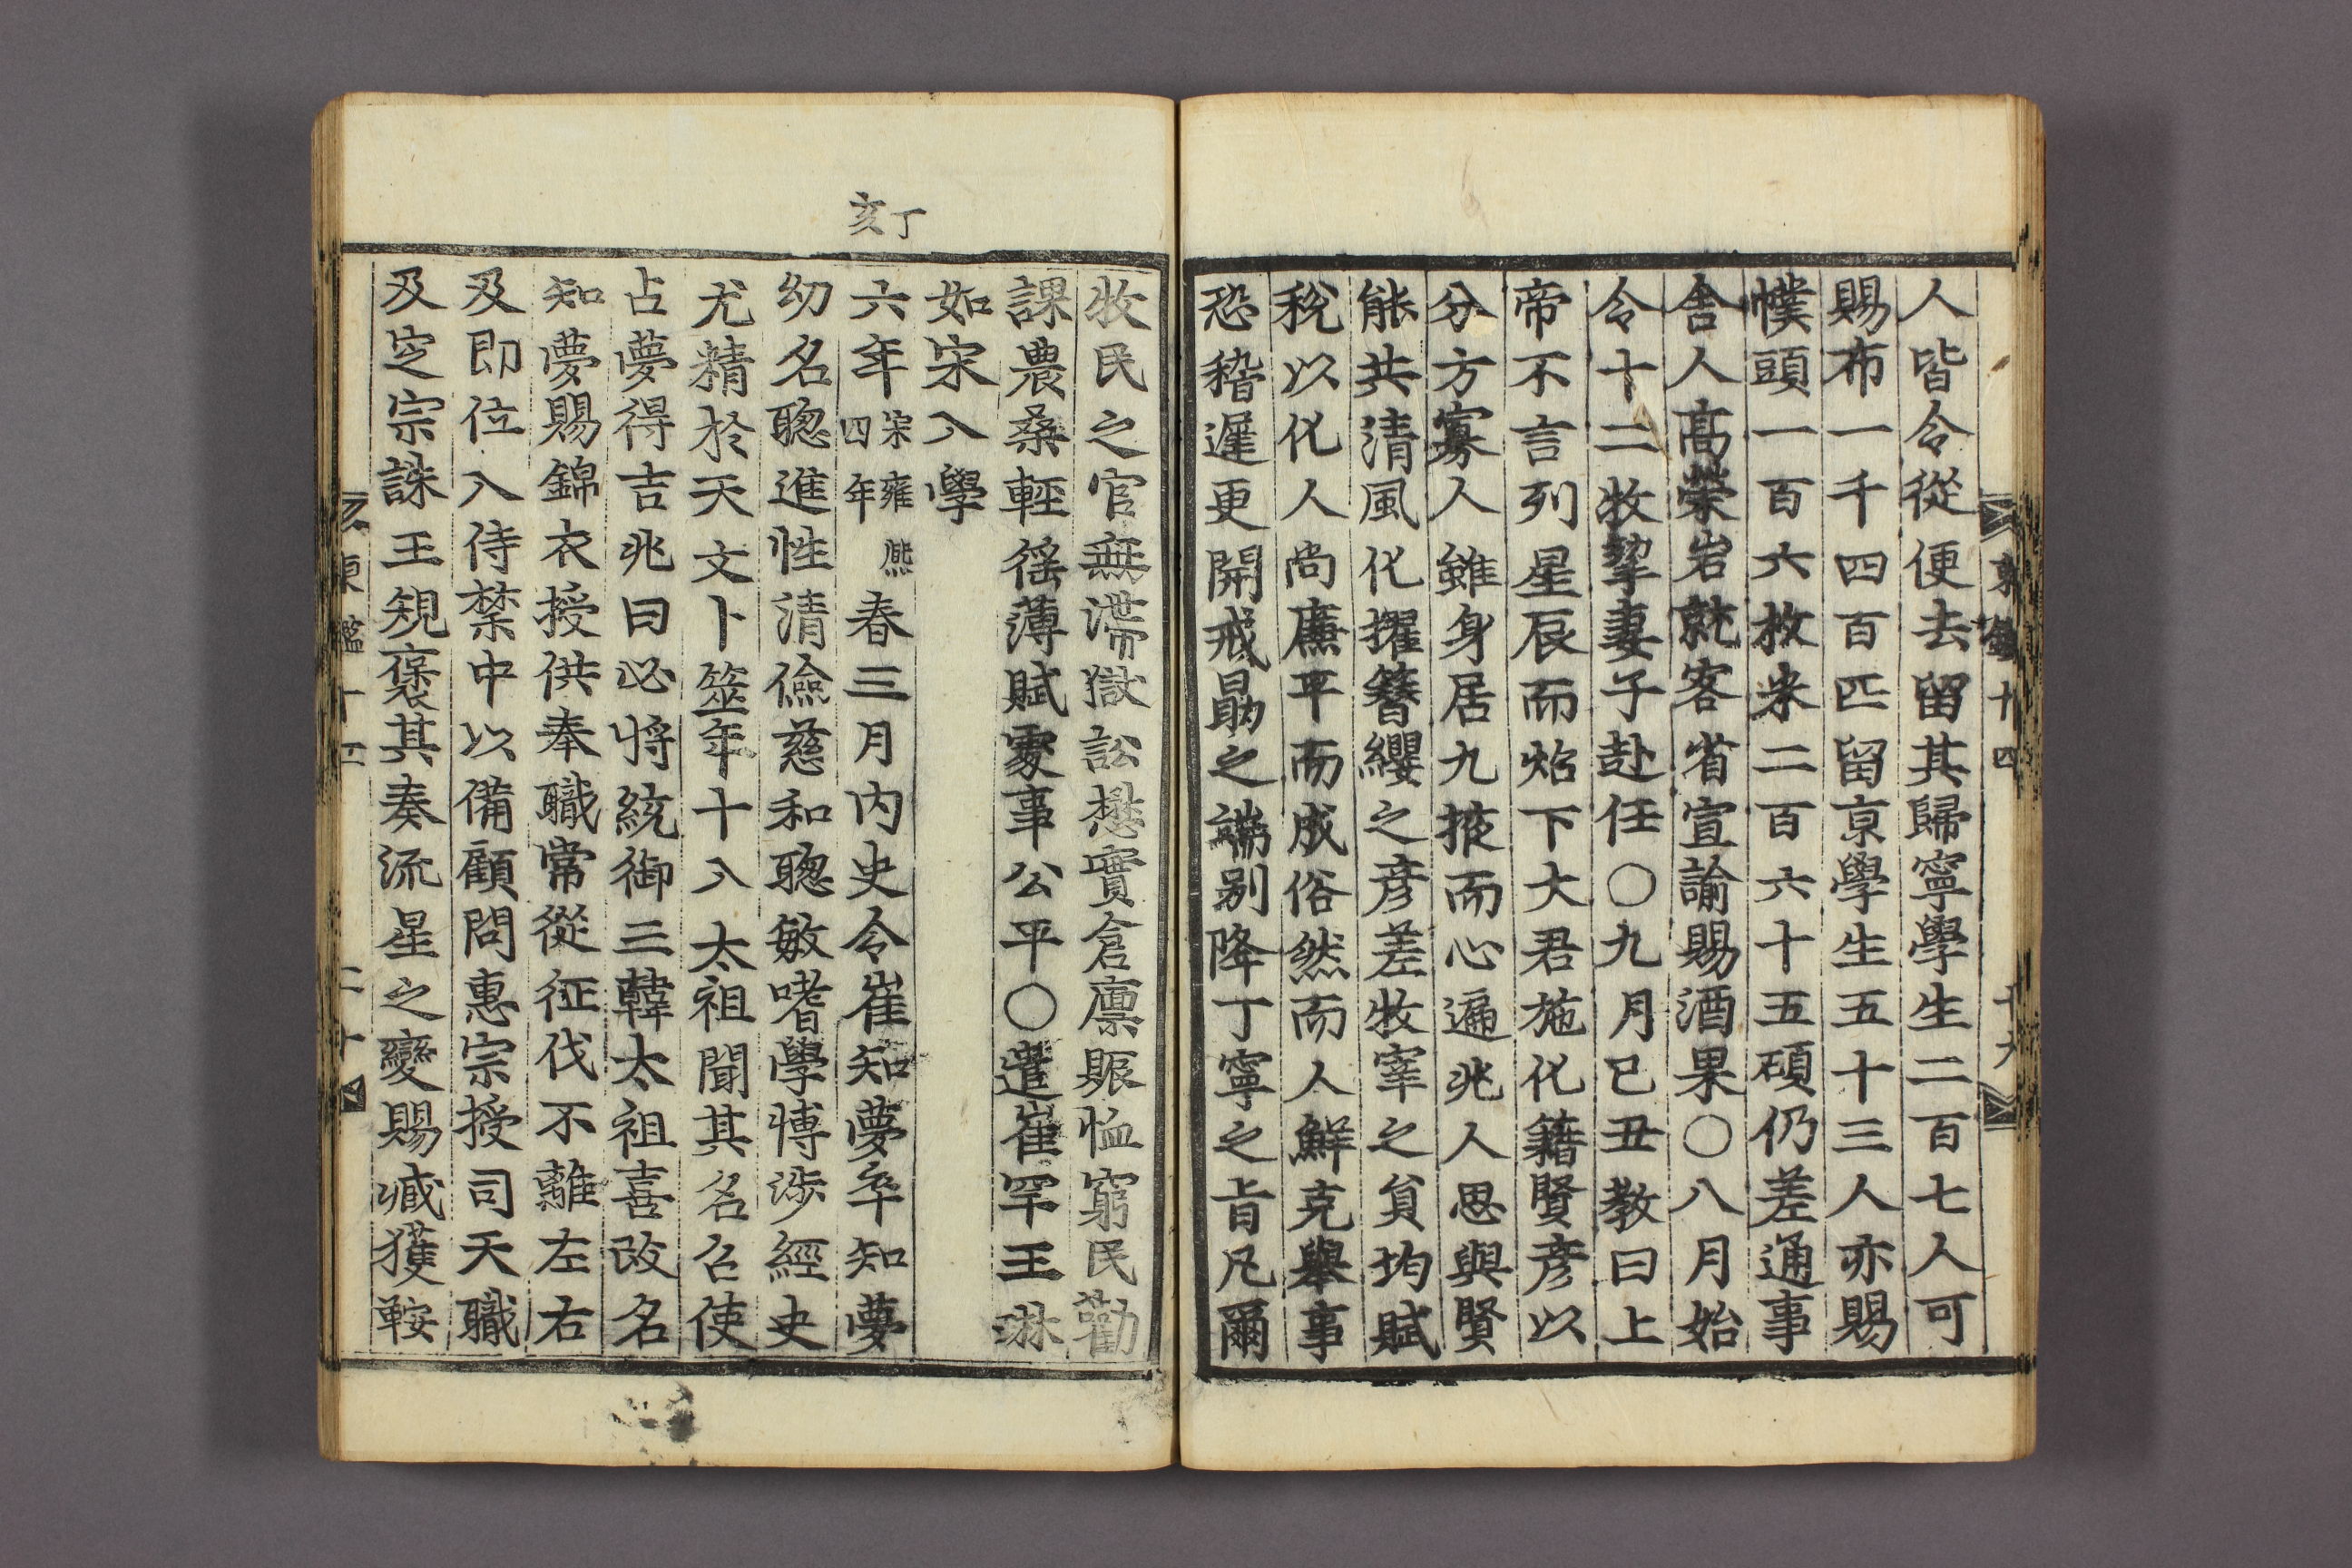 人皆令從便去留其歸寧學生二百七人可
賜布一千四百匹留京學生五十三人亦賜
幞頭一百六枚米二百六十五碩仍差通事
舍人高榮岩就客省宣諭賜酒果○八月始
令十二牧挈妻子赴任○九月己丑教曰上
帝不言列星辰而炤下大君施化籍賢彦以
分方寡人雖身居九掖而心遍兆人思與賢
能共清風化擢簪纓之彦差牧宰之負均賦
稅以化人尚廉平而成俗然而人鮮克舉事
恐稽遲更開戒勗之端别降丁寧之旨凡爾
東鑑十四
十九
丁亥
牧民之官無滯獄訟懋實倉廩賑恤窮民勸
課農桑輕徭薄賦處事公平○遣崔罕王琳
如宋入學
六年宋雍熙四年春三月内史令崔知夢卒知夢
幼名聰進性清儉慈和聰敏嗜學博涉經史
尤精於天文卜筮年十八太祖聞其名召使
占夢得吉兆曰必將統御三韓太祖喜改名
知夢賜錦衣授供奉職常從征伐不離左右
及即位入侍禁中以備顧問惠宗授司天職
及定宗誅王規褒其奏流星之變賜臧獲鞍
東鑑十四
二十